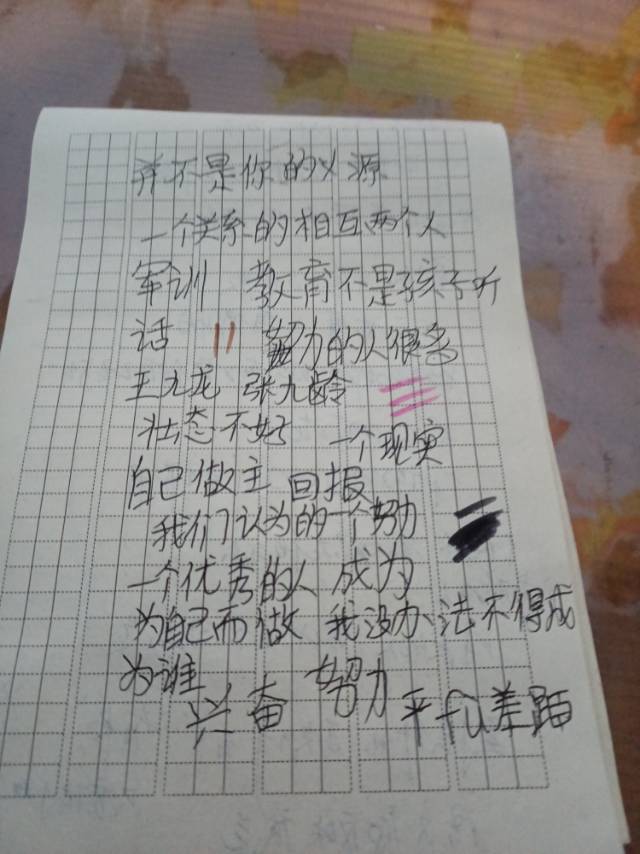 并不是你的义源
一个关系的相互两个人
军训 教育不是孩子听
话 努力的人很多
王九龙 张九龄
状态不好 一个现实
自己做主 回报
我们认为的一个努力
一个优秀的人 成为
为自己而做 我没办法不得成
为谁
兴奋 努力 平fu差距